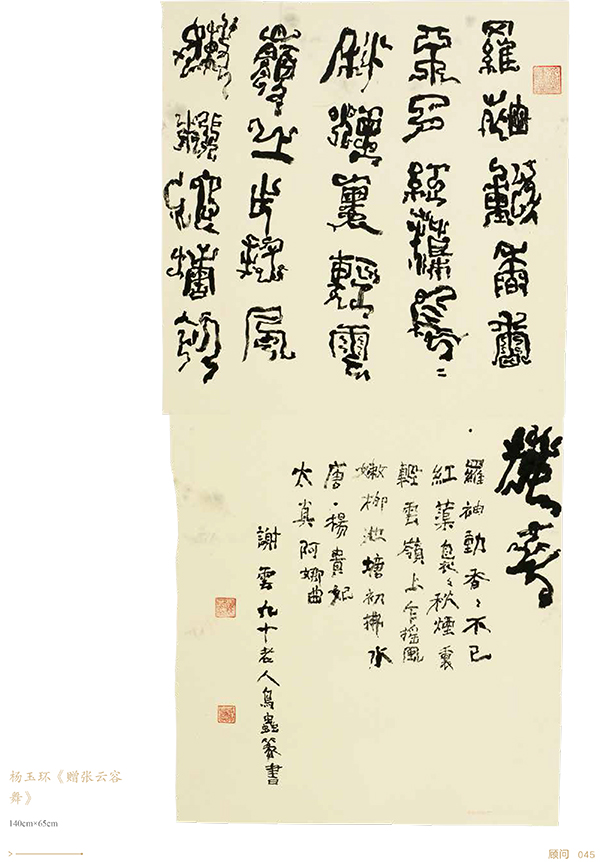 羅袖動香香
不已紅蕖裊〻
秋煙裏輕雲
嶺上乍搖風
嫩柳池塘初
羅袖動香〻不已
紅蕖裊〻秋煙裏
輕雲嶺上乍搖風
嫩柳池塘初拂水
唐·楊貴妃
太真阿娜曲
謝雲九十老人鳥蟲篆書
杨玉环《赠张云容
舞》
140cm×65cm
顾问 045